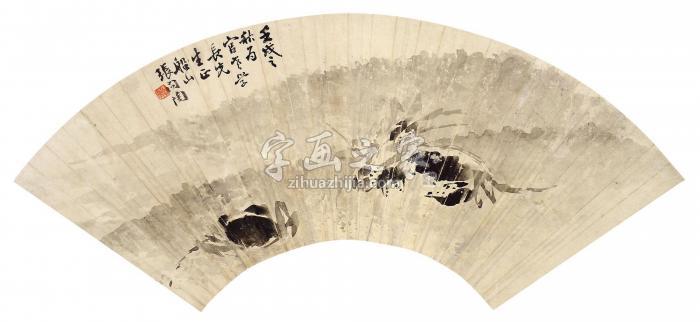 壬戌之
秋为
官作学
长先
生正
船山
张问陶
字画之家
zihuazhijia.com